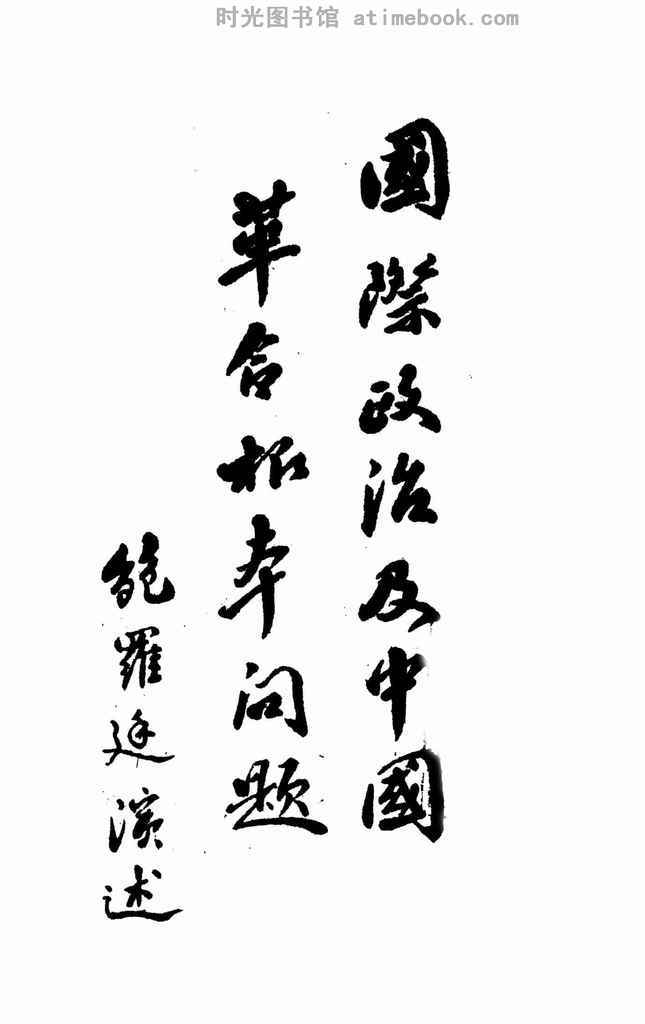 时光图书馆 atimebook.com
國際政治及中國
革命根本问题
鲍羅廷演述